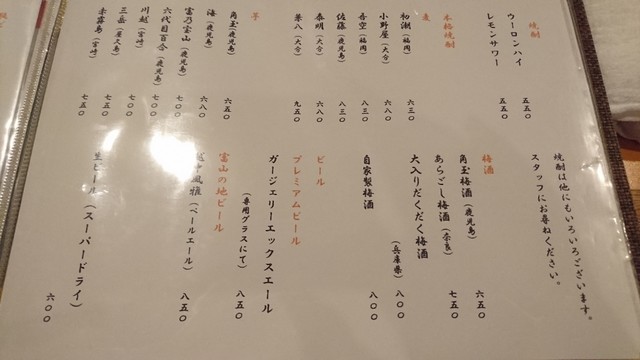 焼酎
ウーロンハイ 五五〇
レモンサワー 五五〇
本格焼酎
麦
初潮（福岡） 六三〇
小野屋（大分） 六八〇
吾空（福岡） 八三〇
佐藤（鹿児島） 八三〇
泰明（大分） 六八〇
兼八（大分） 九五〇
芋
角玉（鹿児島） 六五〇
海（鹿児島） 六八〇
富乃宝山（鹿児島） 七〇〇
六代目百合（鹿児島） 七〇〇
川越（宮崎） 七〇〇
三岳（屋久島） 七五〇
赤霧島（宮崎） 七五〇
焼酎は他にもいろいろございます。
スタッフにお尋ねください。
梅酒
角玉梅酒（鹿児島） 六五〇
あらごし梅酒（奈良） 七五〇
大入りだくだく梅酒（兵庫県） 八〇〇
自家製梅酒 八〇〇
ビール
プレミアムビール
ガージェリーエックスエール
（専用グラスにて） 八五〇
富山の地ビール
越中風雅（ペールエール） 八五〇
生ビール（スーパードライ） 六〇〇